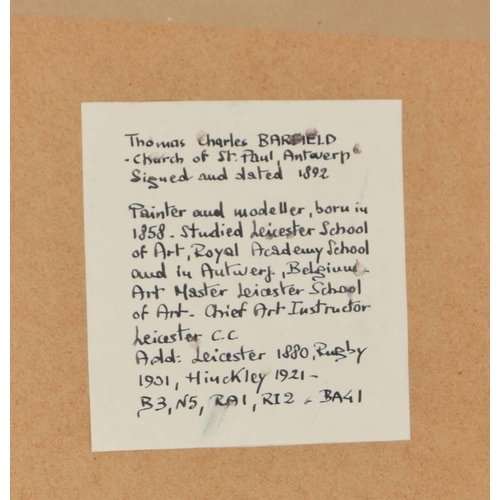 Thomas Charles BARFIELD
- Church of St. Paul, Antwerp -
Signed and dated 1892
Painter and modeller, born in
1858 - Studied Leicester School
of Art, Royal Academy School
and in Antwerp, Belgium -
Art Master Leicester School
of Art - Chief Art Instructor
Leicester C.C
Add: Leicester 1880, Rugby
1901, Hinckley 1921 -
B3, N5, RA1, RI2 - BA41